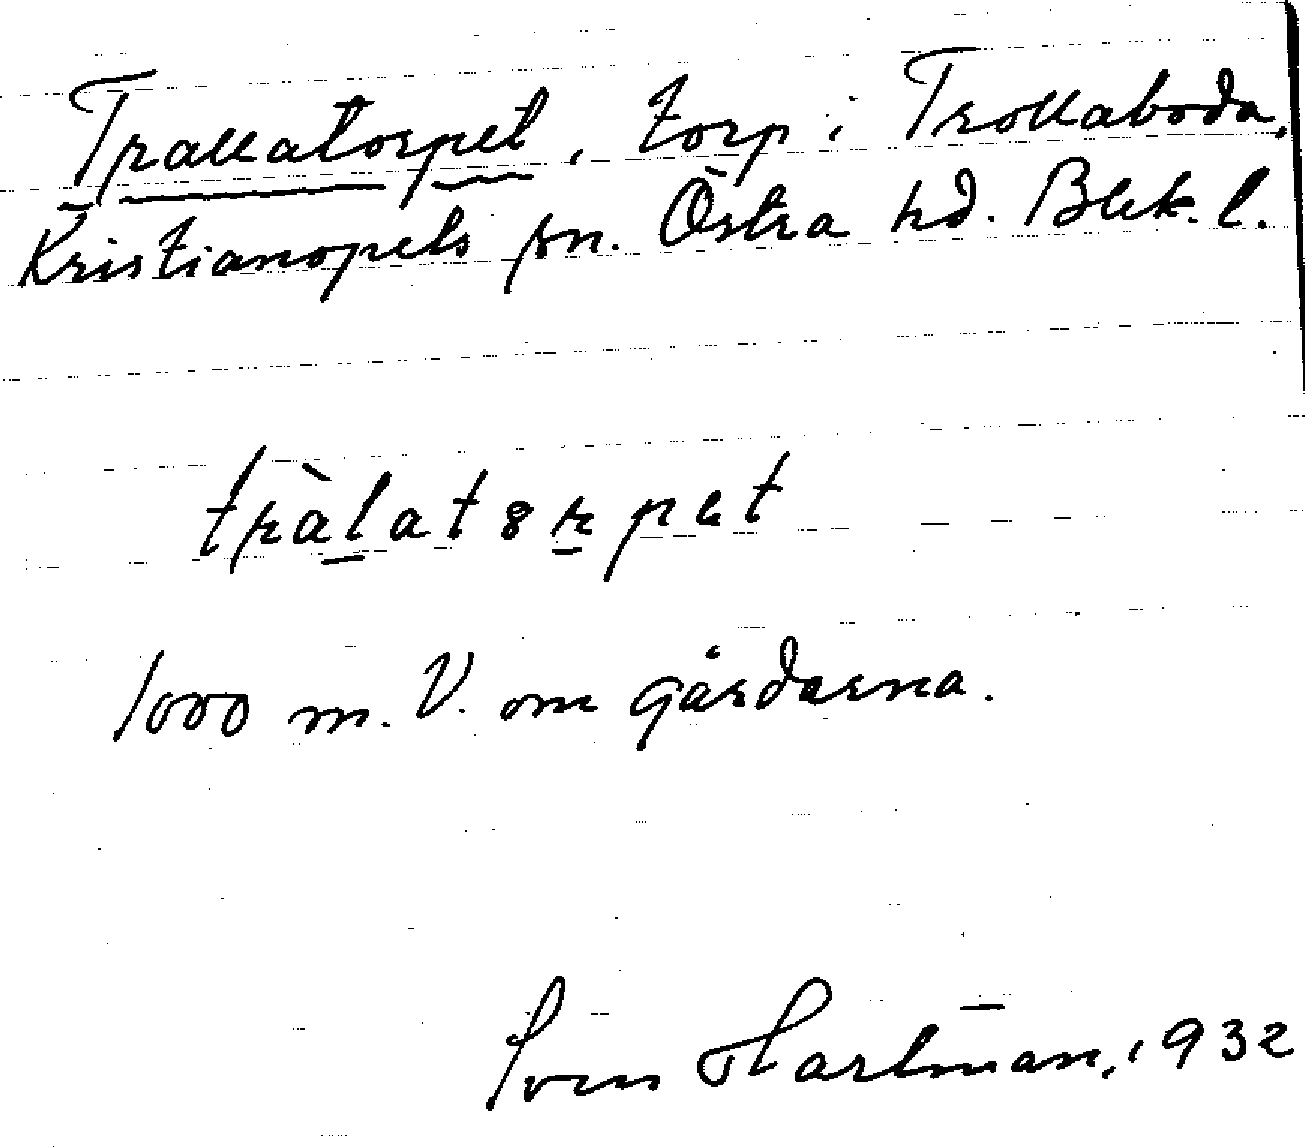 Trallatorpet, torp i Trollaboda,
Kristianopels sn. Östra hd. Blek. l.
tràlatɞrpet
1000 m. V. om gårdarna.
Sven Hartman, 1932